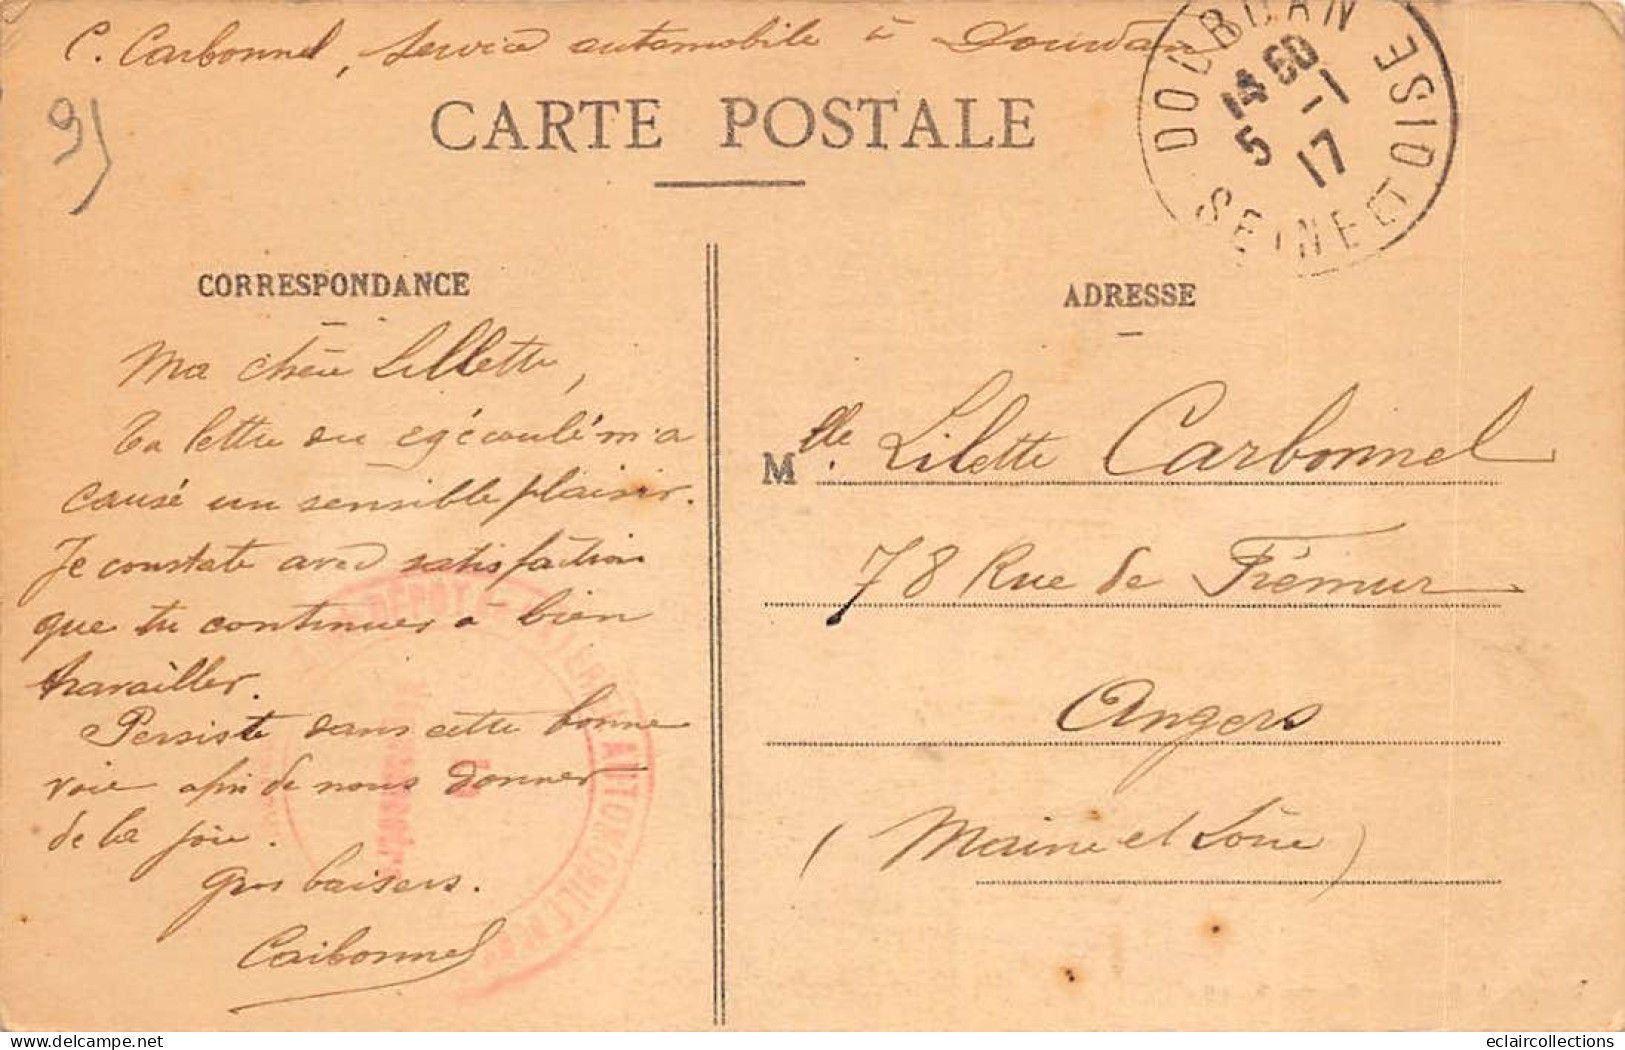 C. Carbonnel, Service automobile à Dourdan
91
CARTE POSTALE
DOURDAN
14 60
5 -1
17
SEINE ET OISE
CORRESPONDANCE
ADRESSE
Ma chère Lillette,
Ta lettre du écoulé m'a
causé un sensible plaisir.
Je constate avec satisfaction
que tu continues à bien
travailler.
Persiste dans cette bonne
voie afin de nous donner
de la joie.
Gros baisers.
Carbonnel
DÉPOT
AUTOMOBILE
Mlle. Lilette Carbonnel
78 Rue de Frémur
Angers
(Maine et Loire)
eclaircollections